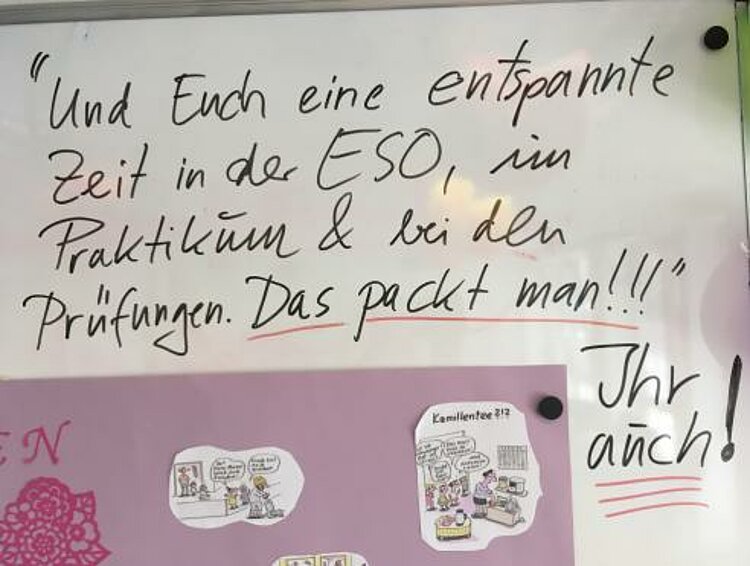 "Und Euch eine entspannte
Zeit in der ESO, im
Praktikum & bei den
Prüfungen. Das packt man!!!"
Ihr
auch!
EN
Kamillentee?!?